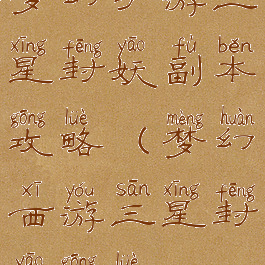 xīng fēng yāo fù běn
星封妖副本
gōng lüè mèng huàn
攻略（梦幻
xī yóu sān xīng fēng
西游三星封
yāo gōng lüè